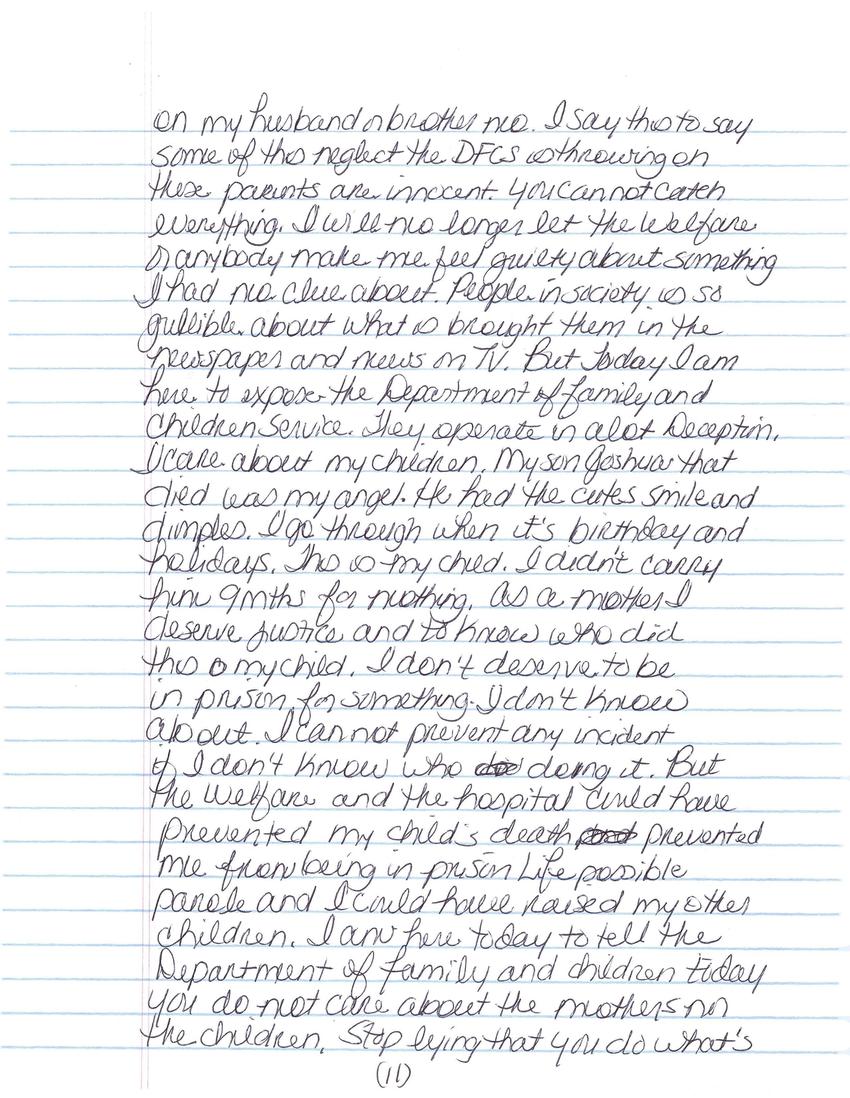 on my husband or brother no. I say this to say
some of this neglect the DFCS is throwing on
these parents are innocent. You cannot catch
everything. I will no longer let the Welfare
or anybody make me feel guilty about something
I had no clue about. People in society is so
gullible about what is brought them in the
newspaper and news on TV. But Today I am
here to expose the Department of family and
Children Service. They operate in alot Deception.
I care about my children. My son Joshua that
died was my angel. He had the cutes smile and
dimples. I go through when it's birthday and
holidays. This is my child. I didn't carry
him 9mths for nothing. As a mother I
deserve justice and to know who did
this o my child. I don't deserve to be
in prison for something I don't know
about. I cannot prevent any incident
if I don't know who doing it. But
the Welfare and the hospital could have
prevented my child's death prevented
me from being in prison Life possible
parole and I could have raised my other
children. I am here today to tell the
Department of family and children today
you do not care about the mothers nor
the children. Stop lying that you do what's
(11)